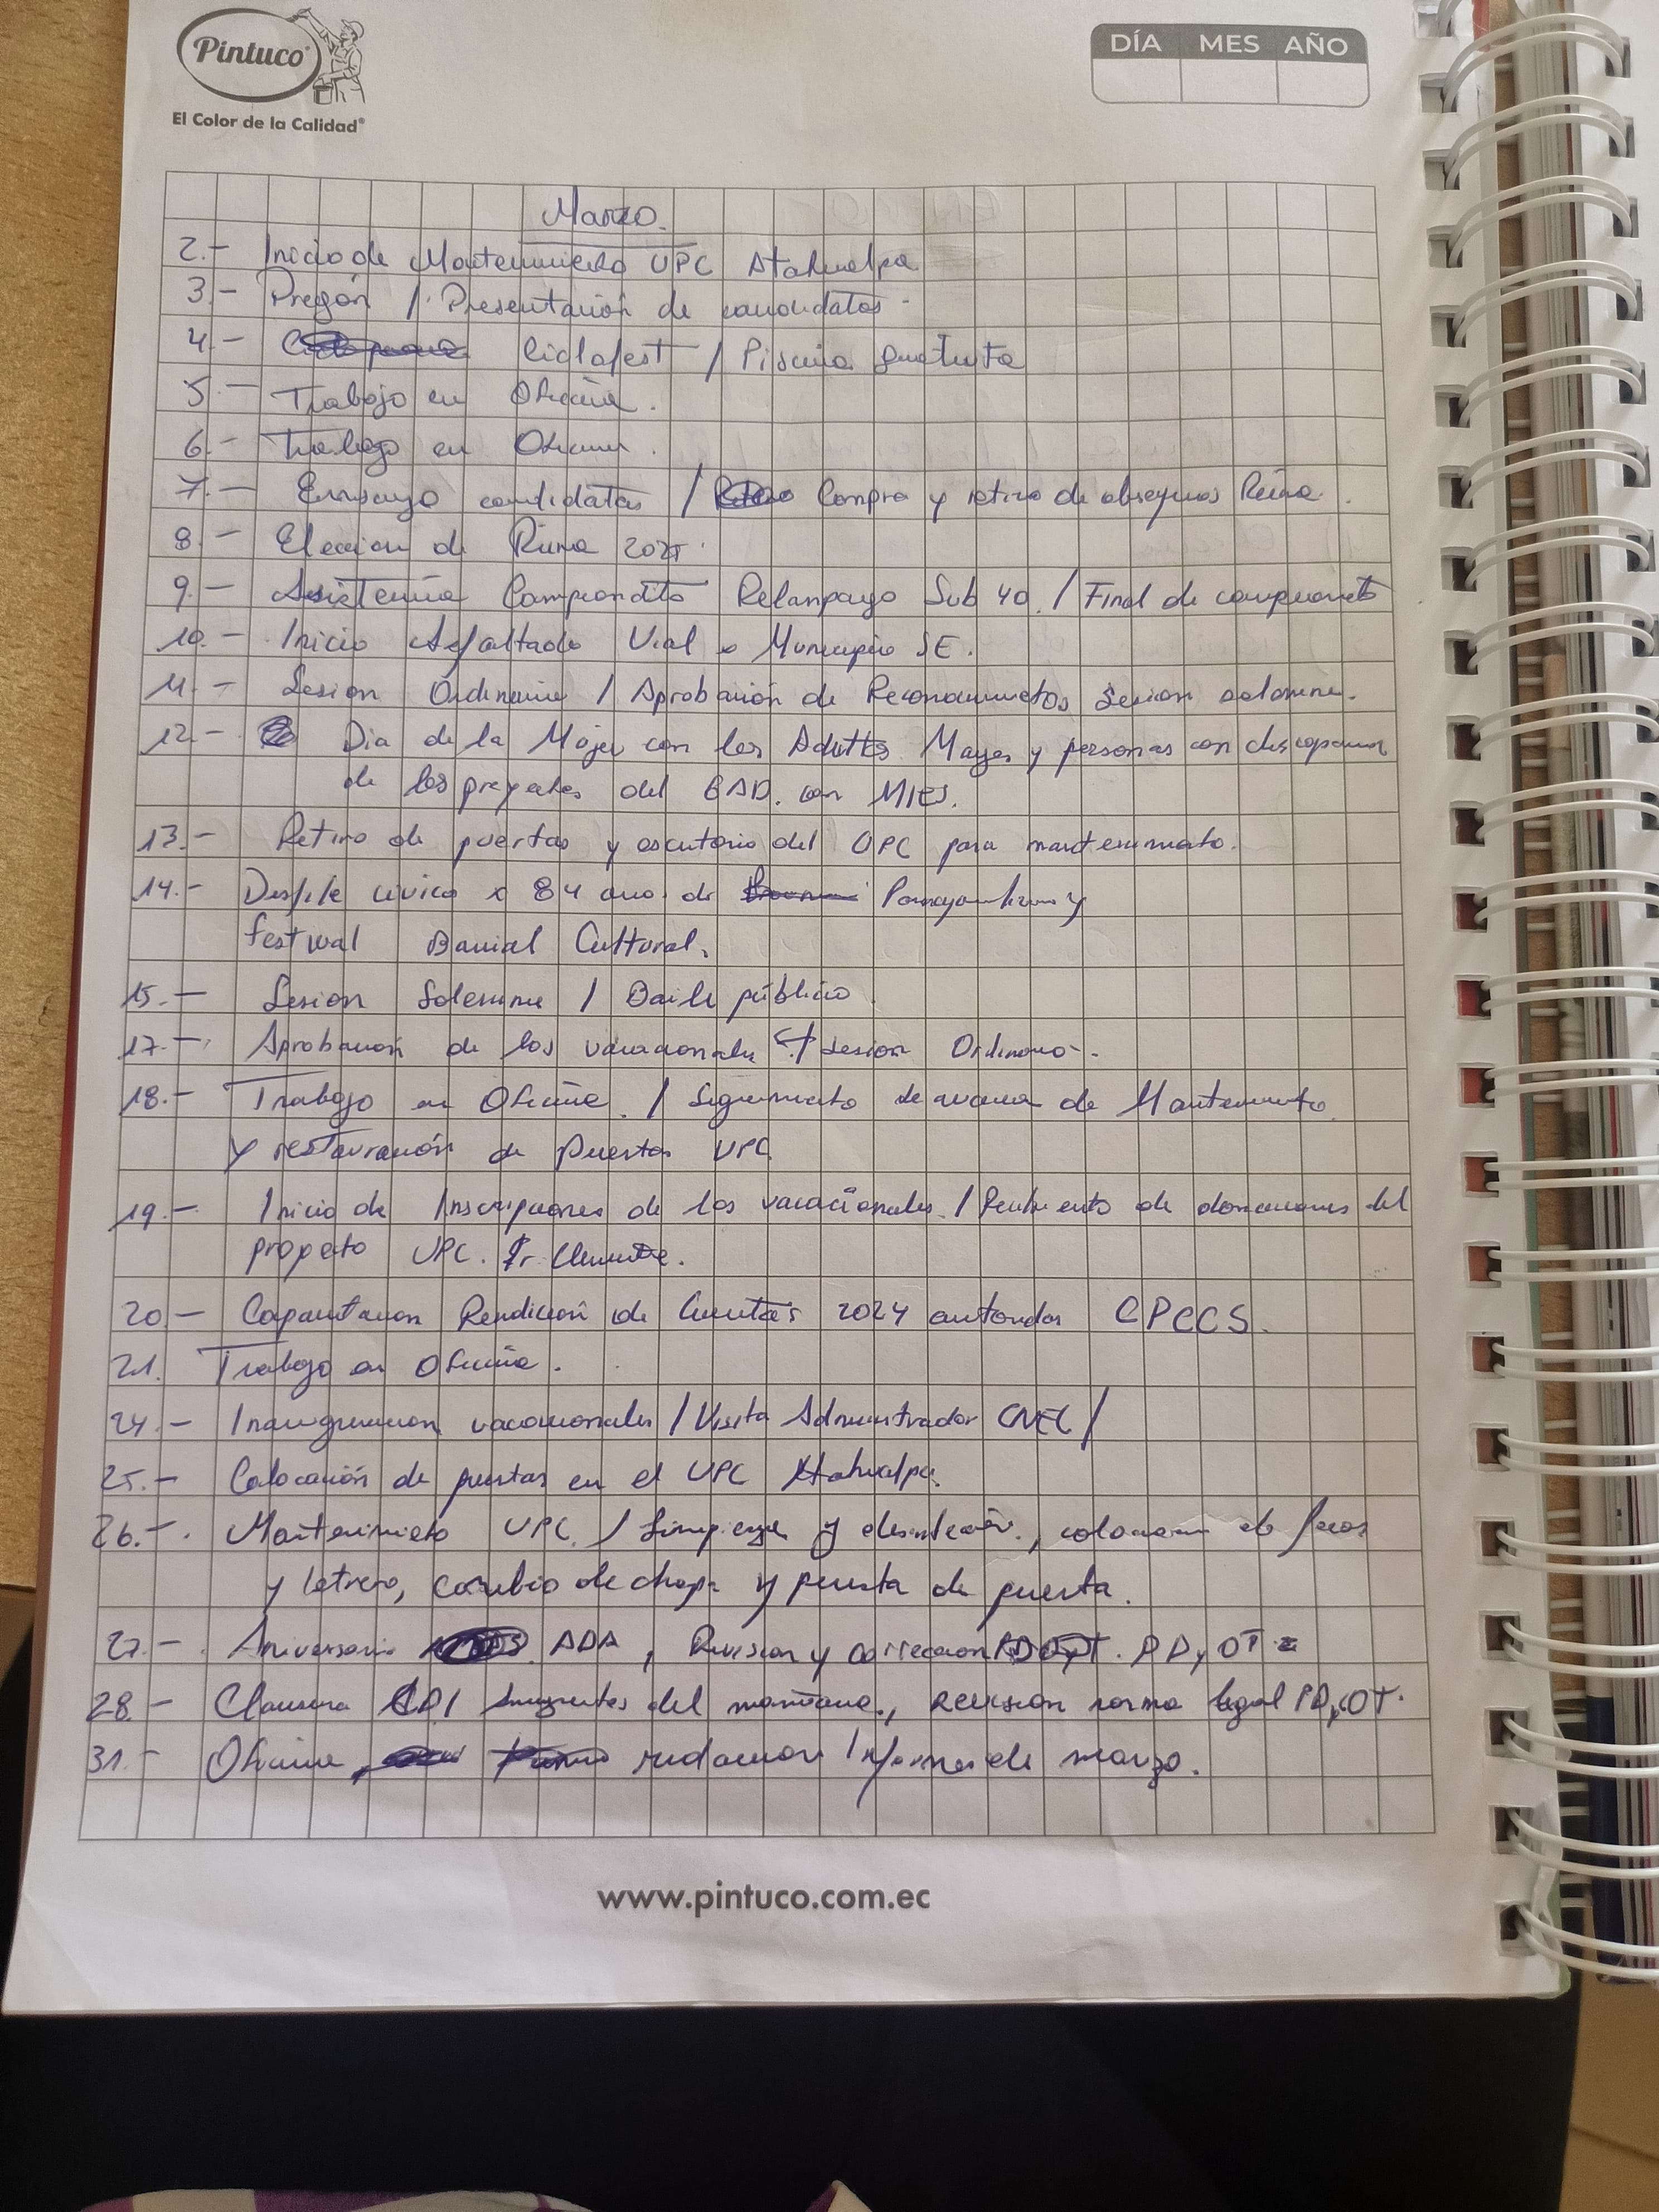 Pintuco®
El Color de la Calidad®
DÍA MES AÑO
Marzo.
2.- Inicio de Mantenimiento UPC Atahualpa
3.- Pregón / Presentación de candidatas
4.- Ciclofest / Piscina gratuita
5.- Trabajo en Oficina.
6.- Trabajo en Oficina.
7.- Ensayo candidatas / Compra y retiro de obsequios Reina.
8.- Eleccion de Reina 2025.
9.- Asistencia Campeonato Relampago Sub 40. / Final de campeonato
10.- Inicio Asfaltado Vial x Municipio SE.
11.- Sesion Ordinaria / Aprobación de Reconocimientos Sesion solemne.
12.- Dia de la Mujer con los Adultos Mayores y personas con discapacidad
de los proyectos del GAD. con MIES.
13.- Retiro de puertas y escritorio del UPC para mantenimiento.
14.- Desfile civico x 84 anos de y
festival Barrial Cultural.
15.- Sesion Solemne / Baile público
17.- Aprobación de los vacacionales / Sesion Ordinaria.
18.- Trabajo en Oficina. / Seguimiento de avance de Mantenimiento
y restauración de Puertas UPC
19.- Inicio de Inscripciones de los vacacionales. / de donaciones del
proyecto UPC. Sr. Clemente.
20.- Capacitacion Rendición de Cuentas 2024 autoridades CPCCS.
21. Trabajo en Oficina.
24.- Inauguracion vacacionales / Visita Administrador CNEL /
25.- Colocación de puertas en el UPC Atahualpa.
26.- Mantenimieto UPC. / Limpieza y desinfección., colocacion de focos
y letrero, cambio de chapa y puesta de puerta.
27.- Aniversario ADA, Revision y correccion PD y OT
28.- Clausura CDI del mañana., revision norma legal PD y OT.
31.- Oficina, redaccion Informes de marzo.
www.pintuco.com.ec